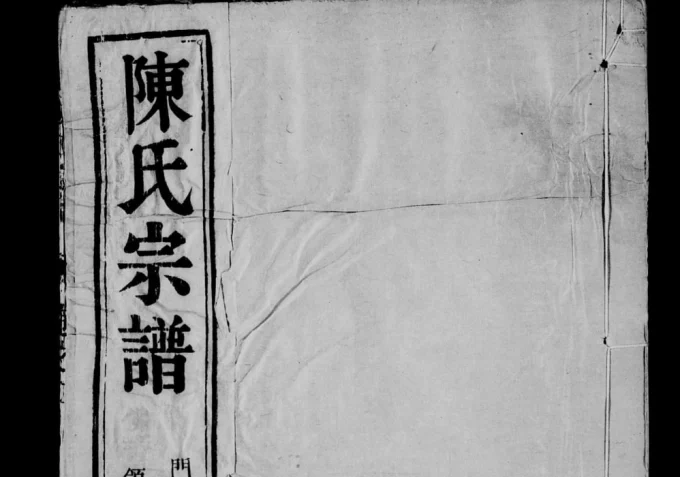 陳氏宗譜
門
領